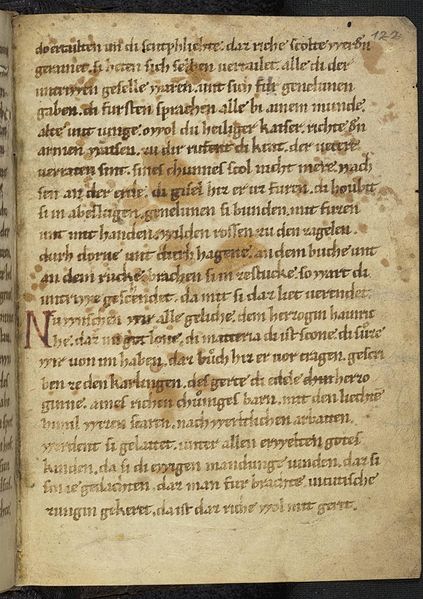 122
do ertailten im di sentphlichte. daz riche scolte werdin
gerainet. si heten sich selben uerteilet. alle di der
untriwen geselle waren. unt sich fur genelunen
gaben. di fursten sprachen alle bi ainem munde.
alte unt iunge. owol du heiliger kaiser. richte den
armen waisen. zu dir rufent di kint. der uetere
uerraten sint. sines chunnes scol nicht mere wach
sen an der erde. di gisel hiz er uz furen. di houbit
si in abeslugen. genelunen si bunden. mit fuzen
unt mit handen. wilden rossen zu den zagelen.
durh dorne unt durch hagene. an dem buche unt
an dem rucke. brachen si in ze stucke. so wart di
untriwe geschendet. da mit si daz liet uerendet.
Nu wnschen wir alle geliche. dem herzogin hainri
che. daz im got lone. di matteria di ist scone. di suͦze
wir von im haben. daz buͦch hiz er vor tragen. gescri
ben ze den karlingen. des gerte di edele herzo
ginne. aines richen chuniges barn. mit den liechten
himil wizen scaren. nach werltlichen arbaiten.
werdent si gelaitet. unter allen erwelten gotes
kinden. da si di ewigen mandunge uinden. daz si
sin ie gedachten. daz man fur brachte. in tutische
zungin gekeret. da ist daz riche wol mit geret.